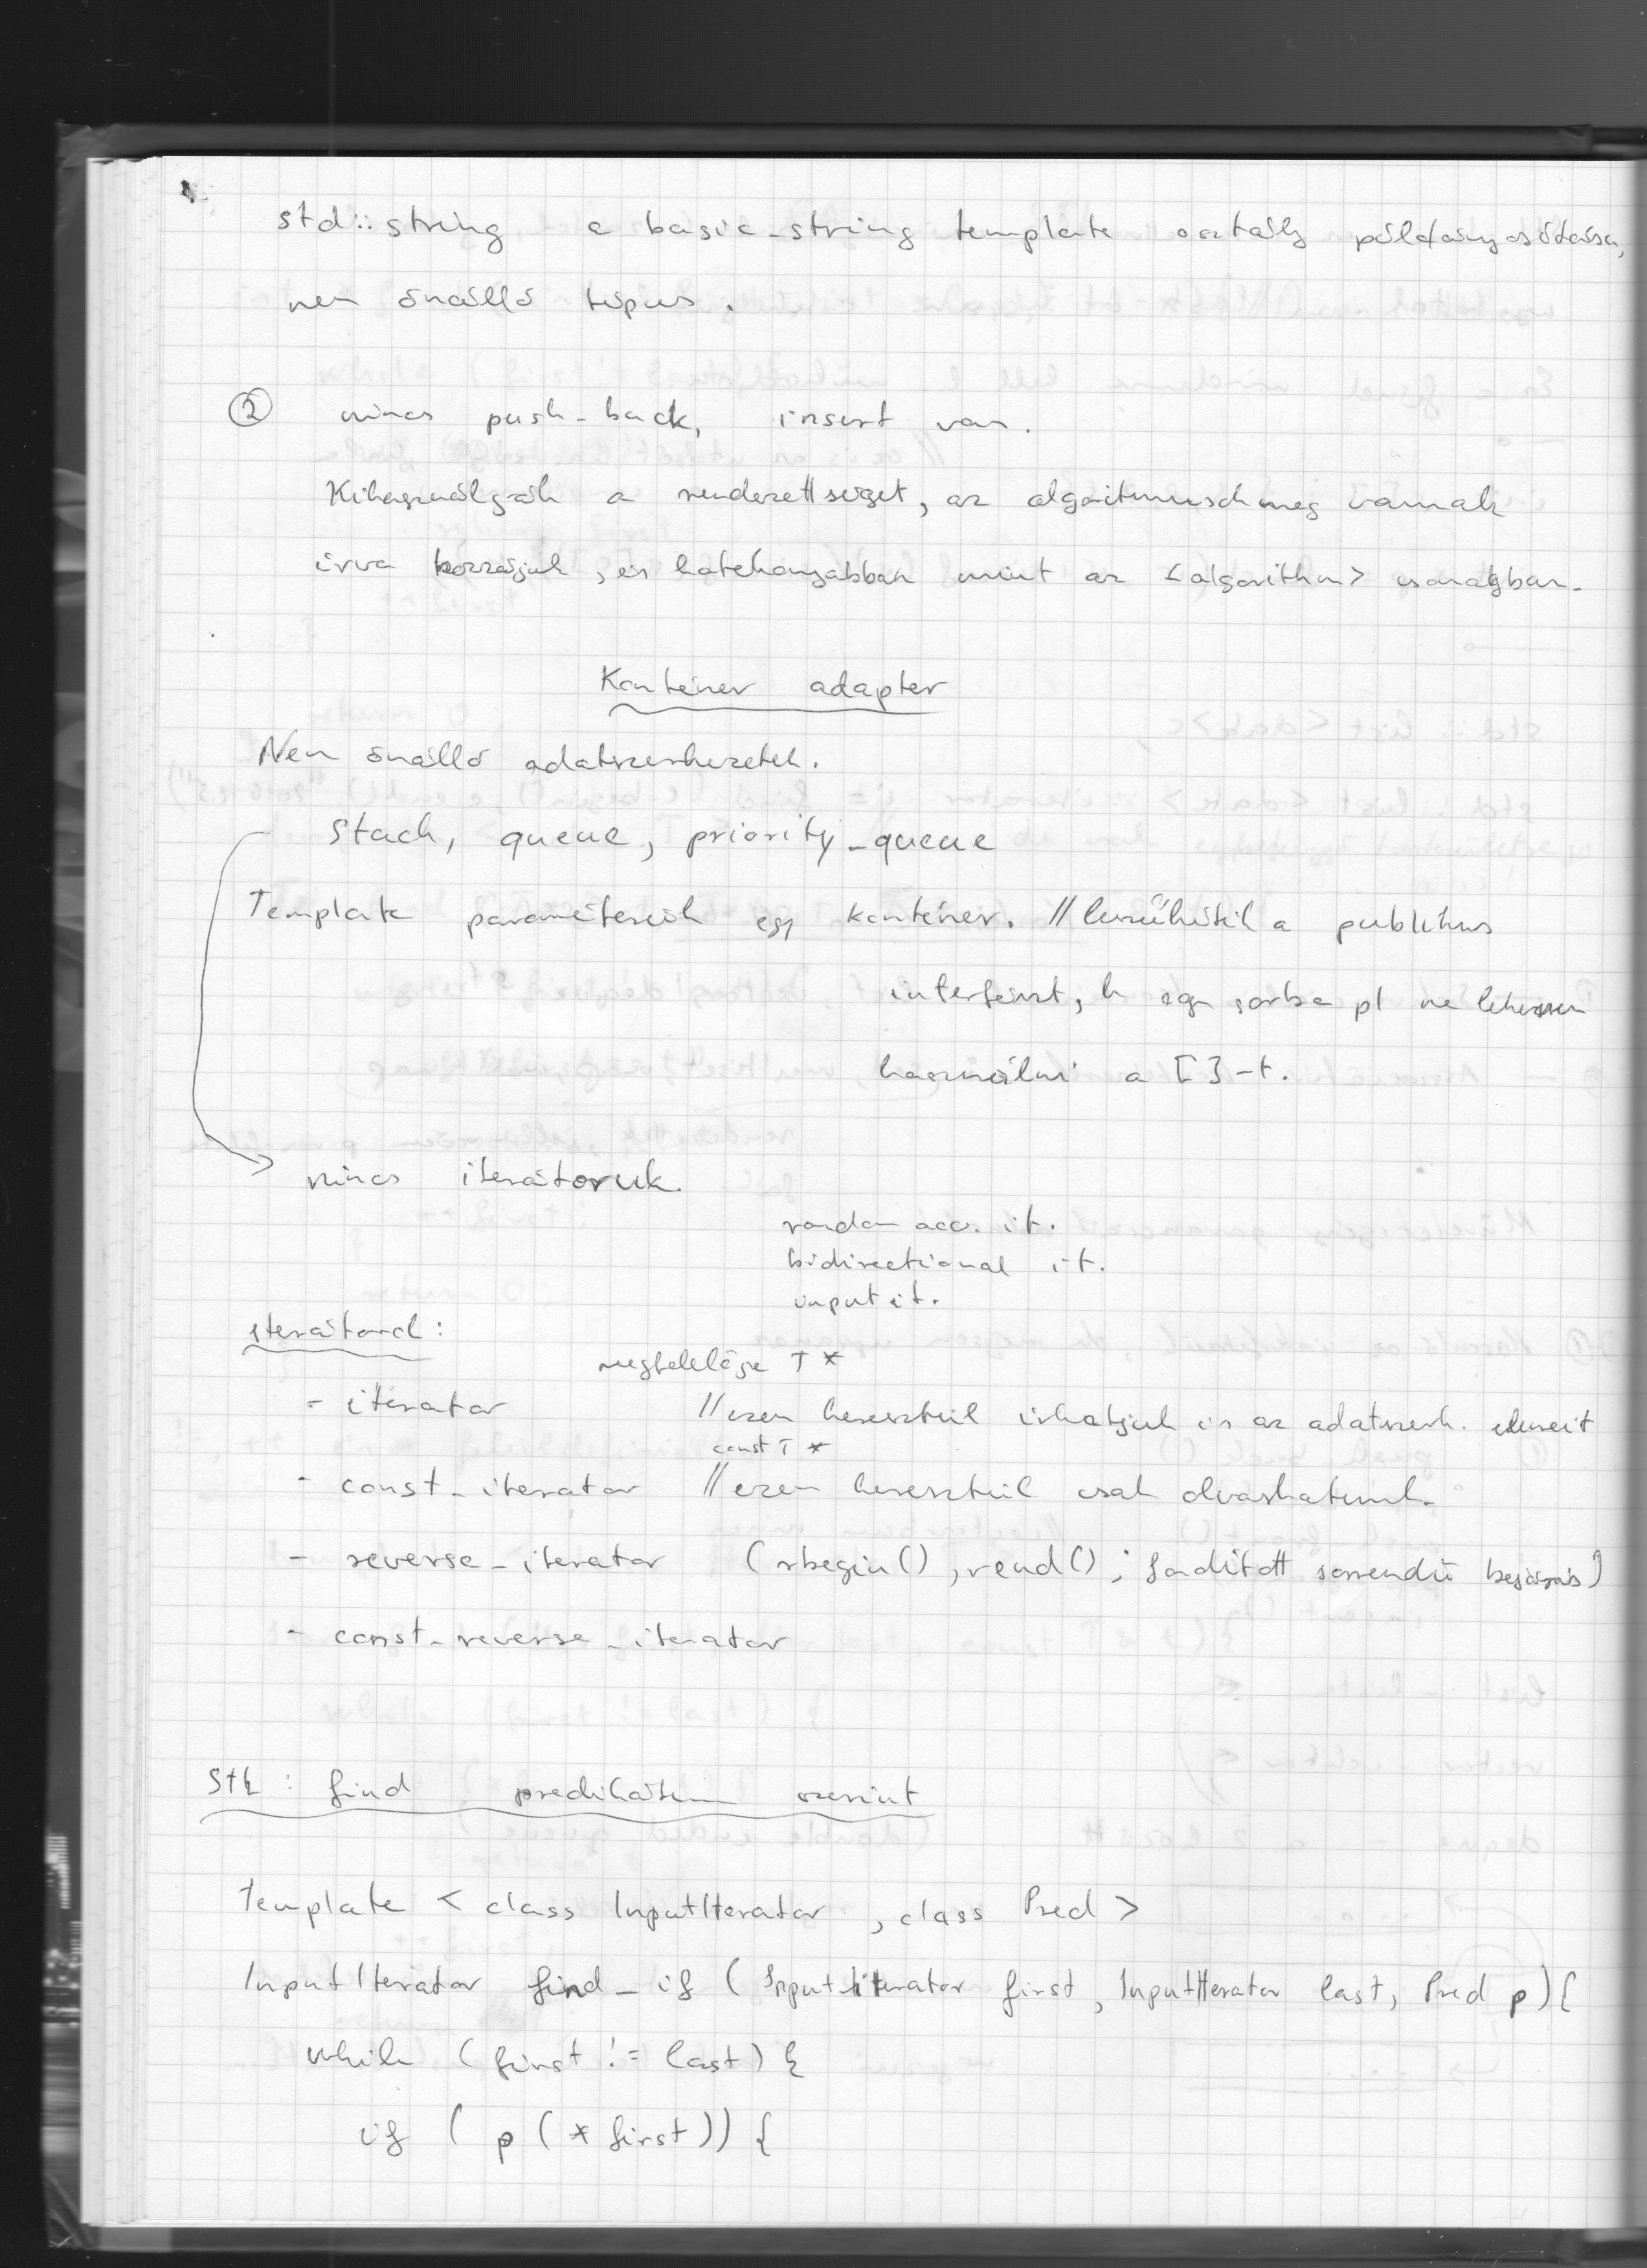 std::string a basic_string template osztály példányosítása,
nem önálló típus.
② nincs push_back, insert van.
Kihasználják a rendezettséget, az algoritmusok meg vannak
írva hozzájuk, és hatékonyabbak mint az <algorithm> csomagban.
Konténer adapter
Nem önálló adatszerkezetek.
stack, queue, priority_queue
Template paraméterük egy konténer. // leszűkítik a publikus
interfészt, h egy sorba pl ne lehessen
használni a []-t.
nincs iterátoruk.
random acc. it.
bidirectional it.
input it.
iterátorok:
megfelelője T *
- iterator // ezen keresztül írhatjuk is az adatszerk. elemeit
const T *
- const_iterator // ezen keresztül csak olvashatunk.
- reverse_iterator (rbegin(), rend() ; fordított sorrendű bejárás)
- const_reverse_iterator
STL : find predikátum szerint
Template < class InputIterator , class Pred >
InputIterator find_if ( InputIterator first, InputIterator last, Pred p) {
while (first != last) {
if ( p ( * first)) {